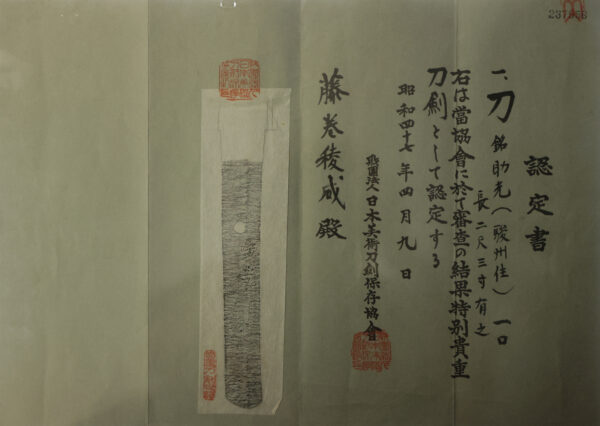 認定書
一、刀 銘助光（駿州住） 一口
長二尺三寸有之
右は當協會に於て審査の結果特別貴重
刀剣として認定する
昭和四十七年四月九日
財團法人日本美術刀剣保存協會
藤巻稜威殿